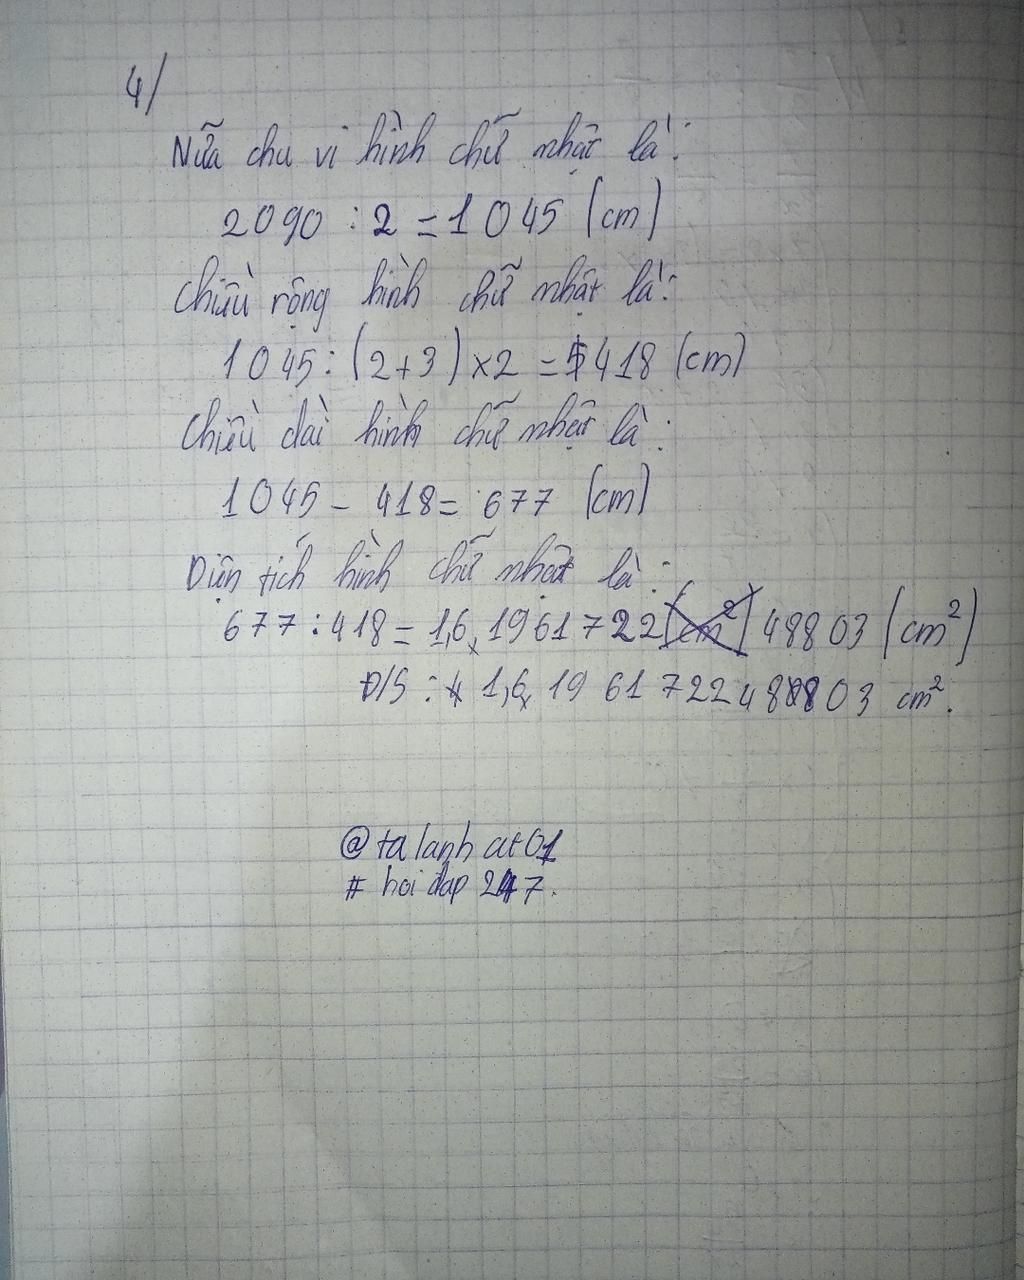 4/
Nữa chu vi hình chữ nhật là:
2090 : 2 = 1045 (cm)
Chiều rộng hình chữ nhật là:
1045 : (2+3) x 2 = 418 (cm)
Chiều dài hình chữ nhật là:
1045 - 418 = 677 (cm)
Diện tích hình chữ nhật là:
677 : 418 = 1,6196172248803 (cm²)
Đ/S : 1,6196172248803 cm².
@talanhcat01
# hoidap 247.